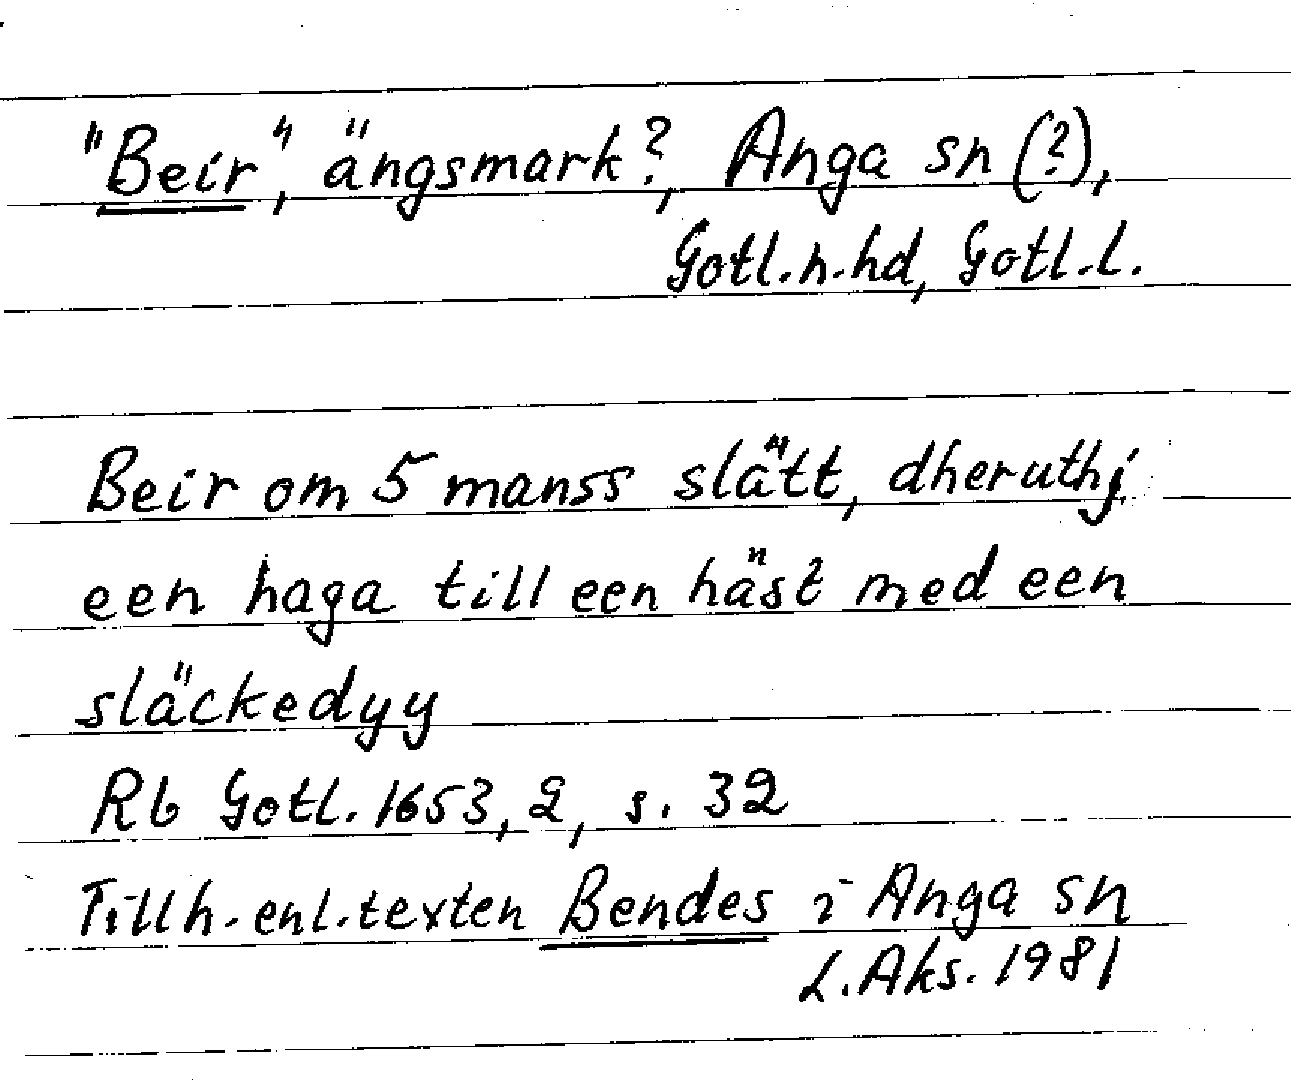 "Beir", ängsmark?, Anga sn (?),
Gotl.n.hd, Gotl.l.
Beir om 5 manss slätt, dheruthj
een haga till een häst med een
släckedyy
Rb Gotl. 1653, 2, s. 32
Tillh. enl. texten Bendes i Anga sn
L. Aks. 1981